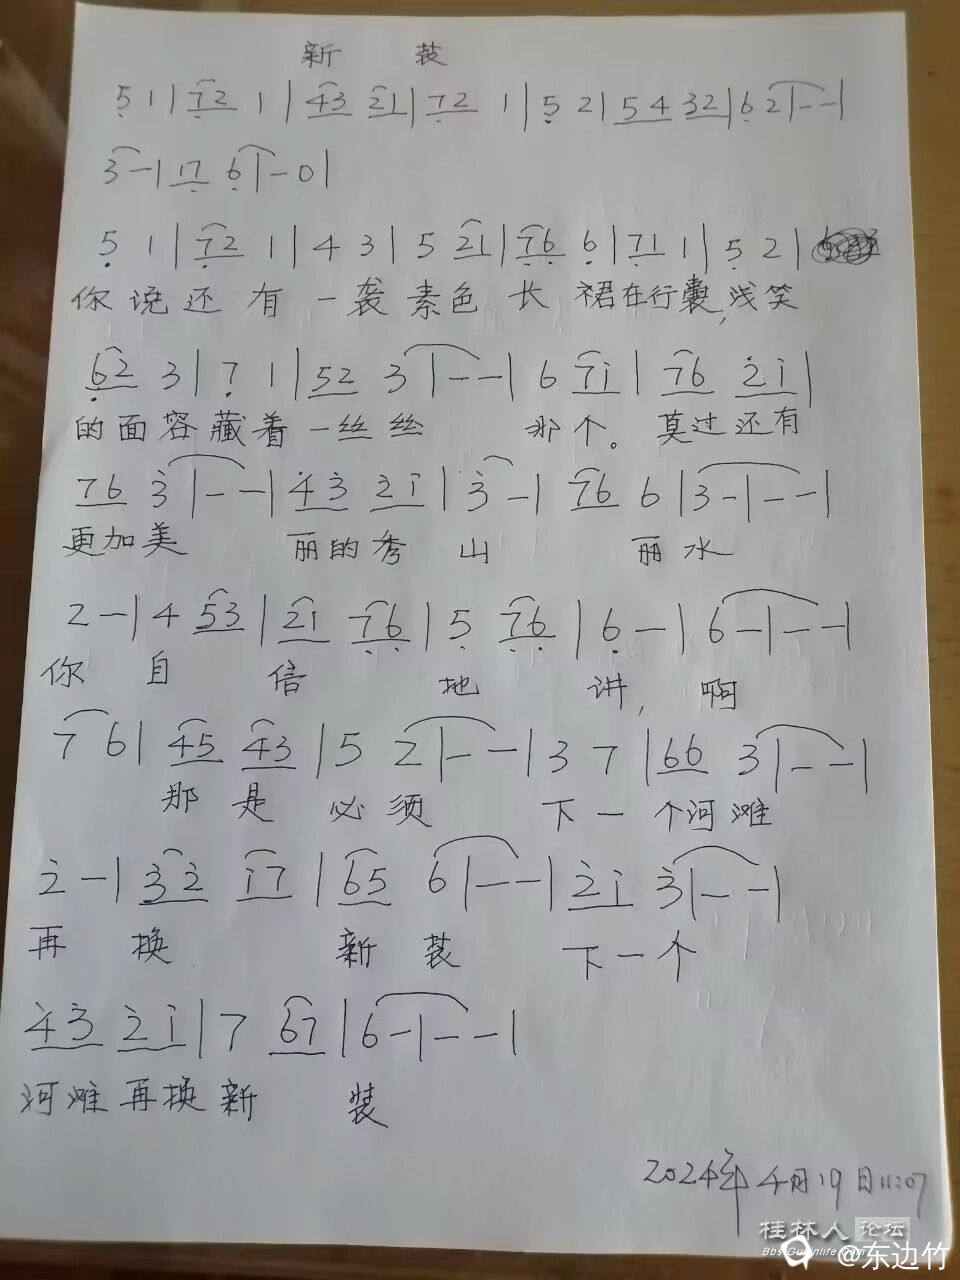 新 装
5 1 | 72 1 | 43 21 | 72 1 | 5 2 | 54 32 | 6 2 | - - |
3 - | 17 6 | - 0 |
5 1 | 72 1 | 4 3 | 5 21 | 76 6 | 71 1 | 5 2 |
你说还有一袭素色长裙在行囊,浅笑
62 3 | 7 1 | 52 3 | - - | 6 7i | 76 2̇i |
的面容藏着一丝丝 那个。莫过还有
76 3̇ | - - | 4̇3̇ 2̇i | 3̇ - | 76 6 | 3 - | - - |
更加美 丽的秀 山 丽水
2 - | 4 53 | 21 76 | 5 76 | 6 - | 6 - | - - |
你 自 信 地 讲, 啊
7 6 | 45 43 | 5 2 | - - | 3 7 | 66 3 | - - |
那 是 必 须 下 一 个河滩
2̇ - | 3̇2̇ i7 | 65 6 | - - | 2̇i 3̇ | - - |
再 换 新 装 下一个
4̇3̇ 2̇i | 7 67 | 6 - | - - |
河滩再换新 装
2024年4月19日11:07
桂林人 论坛
Bbs.Guilinlife.com
@东边竹